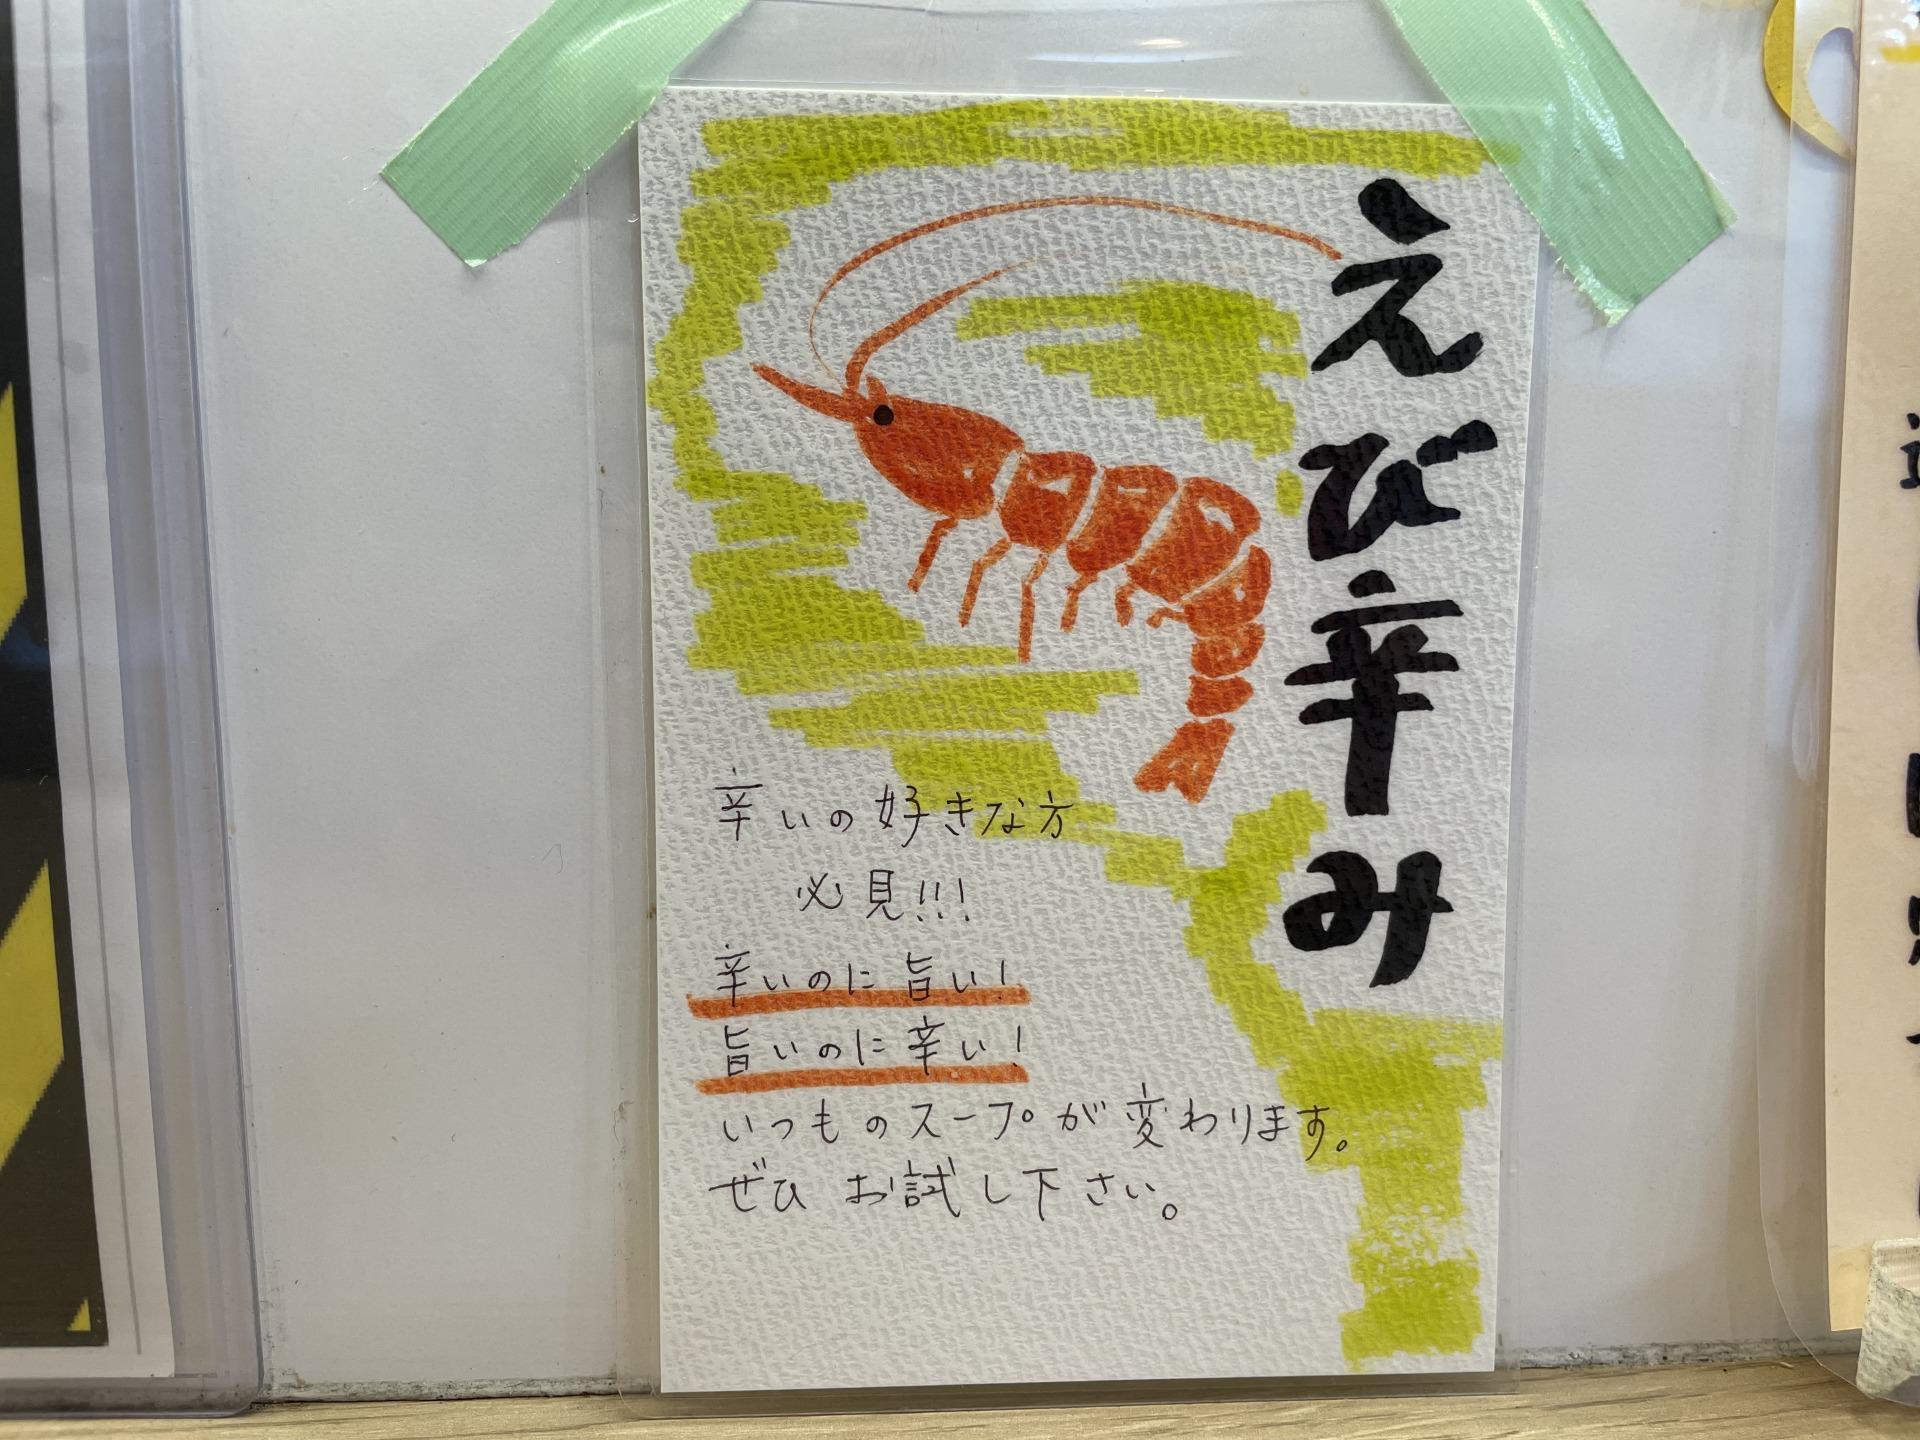 えび辛み
辛いの好きな方
必見!!!
辛いのに旨い!
旨いのに辛い!
いつものスープが変わります。
ぜひお試し下さい。